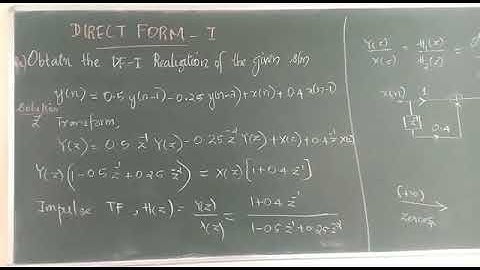 DIRECT FORM - I
Obtain the DF-I Realization of the given s/m
y(n) = 0.5 y(n-1) - 0.25 y(n-2) + x(n) + 0.4 x(n-1)
Solution
Z Transform,
Y(z) = 0.5 z⁻¹ Y(z) - 0.25 z⁻² Y(z) + X(z) + 0.4 z⁻¹ X(z)
Y(z) (1 - 0.5 z⁻¹ + 0.25 z⁻²) = X(z) [1 + 0.4 z⁻¹]
Impulse TF, H(z) = Y(z)/X(z) = 1 + 0.4 z⁻¹ / 1 - 0.5 z⁻¹ + 0.25 z⁻²
Y(z)/X(z) = H₁(z)/H₂(z) =
x(n) 1
z⁻¹
0.4
zeroes